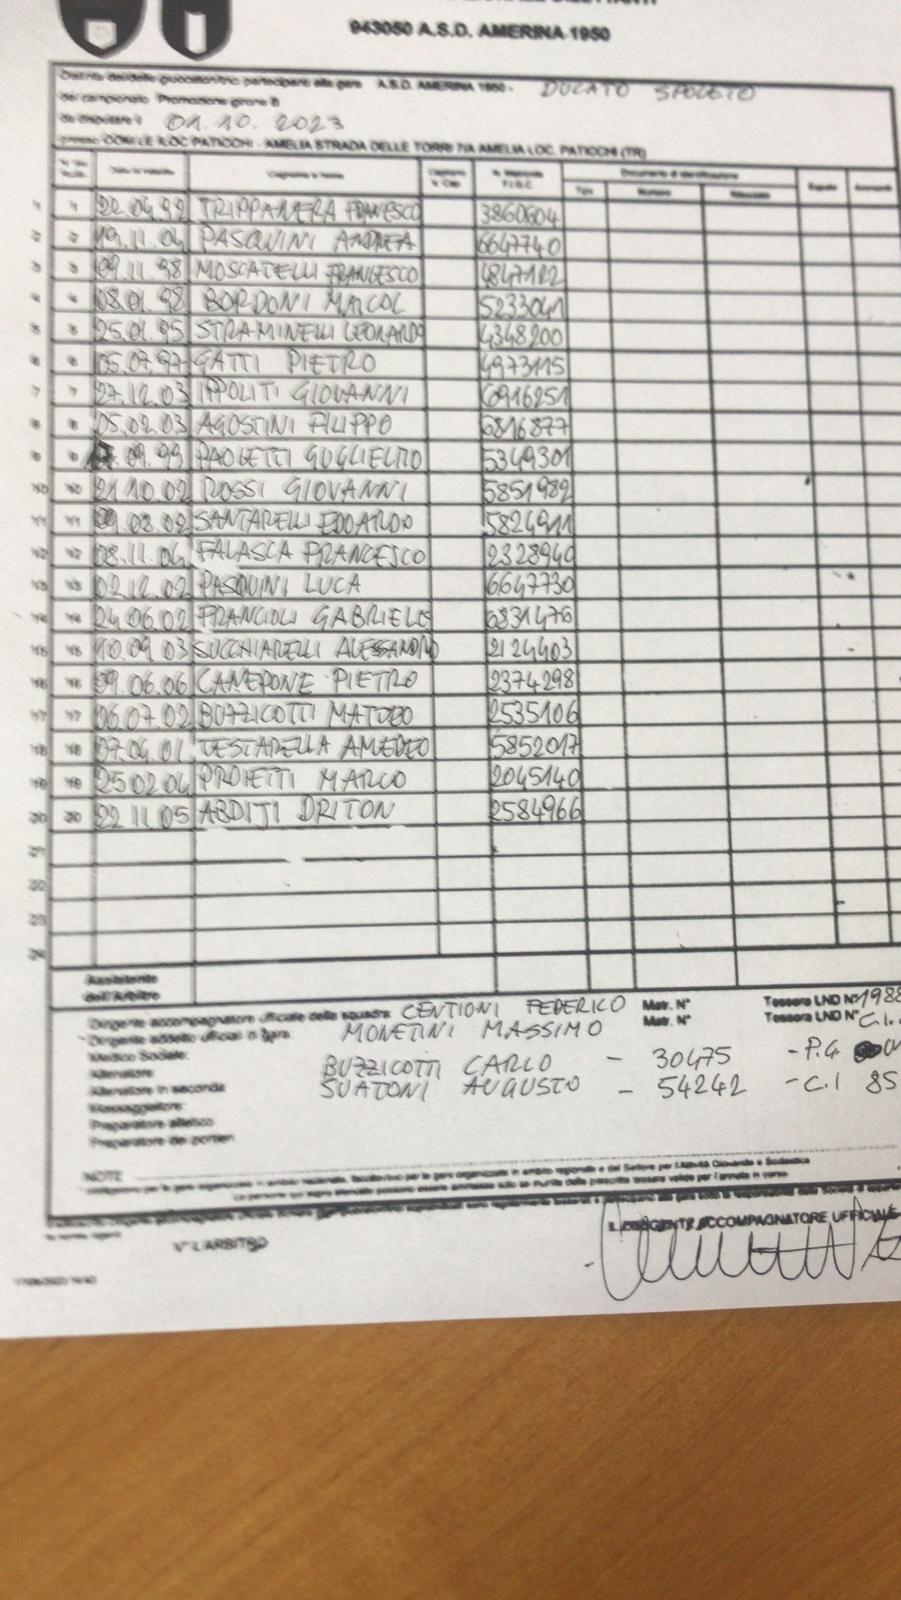 943050 A.S.D. AMERINA 1950
Distinta dei/delle giocatori/trici partecipanti alla gara A.S.D. AMERINA 1950 - DUCATO SPOLETO
del campionato Promozione girone B
da disputare il 01.10.2023
COM.LE LOC PATICCHI - AMELIA STRADA DELLE TORRI 7/A AMELIA LOC. PATICCHI (TR)
Data di nascita Cognome e Nome Capitano V. Cap. N. Matricola F.I.G.C. Documento di identificazione
Tipo Numero Rilasciato
1 1 22.04.92 TRIPPANERA FRANCESCO 3860604
2 2 19.11.04 PASQUINI ANDREA 6647740
3 3 09.11.98 MOSCATELLI FRANCESCO 4847122
4 4 08.01.98 BORDONI MAICOL 5233041
5 5 25.01.95 STRAMINELLI LEONARDO 4348200
6 6 05.07.97 GATTI PIETRO 4973115
7 7 27.12.03 IPPOLITI GIOVANNI 6916251
8 8 05.02.03 AGOSTINI FILIPPO 6816877
9 9 09.99 PAOLETTI GUGLIELMO 5349301
10 10 21.10.02 ROSSI GIOVANNI 5851982
11 11 08.02 SANTARELLI EDOARDO 5824911
12 12 08.11.04 FALASCA FRANCESCO 2328940
13 13 02.12.02 PASQUINI LUCA 6647730
14 14 24.06.02 FRANCIOLI GABRIELE 6831476
15 15 10.09.03 SUCCHIARELLI ALESSANDRO 2124403
16 16 09.06.06 CANEPONE PIETRO 2374298
17 17 06.07.02 BUZZICOTTI MATTEO 2535106
18 18 07.04.01 TESTARELLA AMEDEO 5852017
19 19 25 02 04 PROIETTI MARCO 2045140
20 20 22 11 05 ABDIJI DRITON 2584966
21
22
23
24
Assistente
dell'Arbitro
Dirigente accompagnatore ufficiale della squadra CENTIONI FEDERICO Matr. N° Tessera LND N°
Dirigente addetto ufficiali di gara: MONETINI MASSIMO Matr. N° Tessera LND N° C.I.
Medico Sociale:
Allenatore BUZZICOTTI CARLO - 30475 - P.G
Allenatore in seconda SUATONI AUGUSTO - 54242 - C.I 85
Massaggiatore:
Preparatore atletico
Preparatore dei portieri
NOTE
IL DIRIGENTE ACCOMPAGNATORE UFFICIALE
V° L'ARBITRO